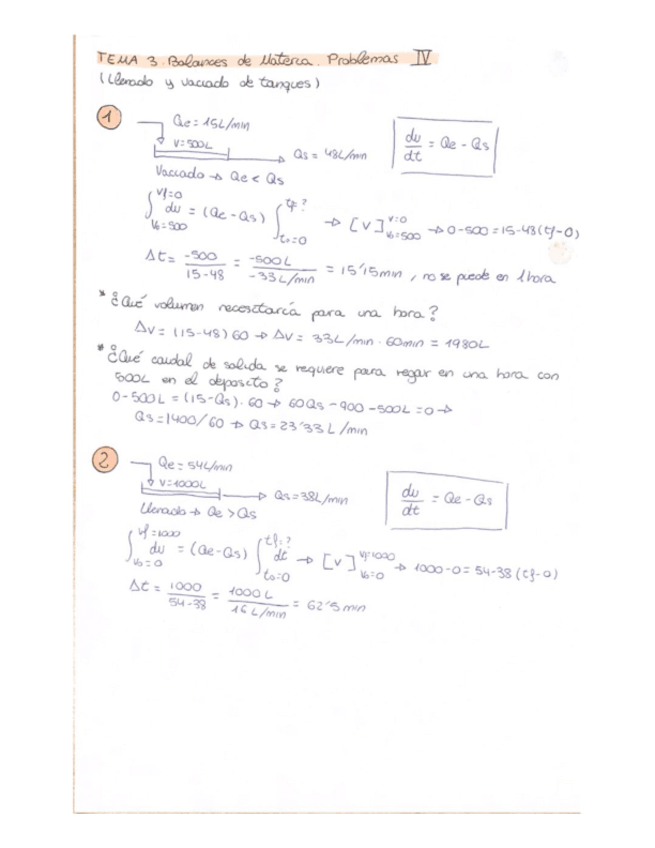 TEMA 3. Balances de Materia. Problemas IV
(Llenado y vaciado de tanques)
1
Qe = 15L/min
V=500L
Qs = 48L/min
dv/dt = Qe - Qs
Vaciado → Qe < Qs
∫ Vf=0 V0=500 dv = (Qe-Qs) ∫ tf=? t0=0 → [V] V=0 V0=500 → 0-500=15-48(tf-0)
Δt = -500/15-48 = -500L/-33L/min = 15'15min, no se puede en 1 hora
* ¿Qué volumen necesitaría para una hora?
ΔV = (15-48) 60 → ΔV = 33L/min · 60min = 1980L
* ¿Qué caudal de salida se requiere para regar en una hora con
500L en el deposito?
0-500L = (15-Qs)·60 → 60Qs - 900 - 500L = 0 →
Qs = 1400/60 → Qs = 23'33L/min
2
Qe = 54L/min
V=1000L
Qs = 38L/min
dv/dt = Qe - Qs
Llenado → Qe > Qs
∫ Vf=1000 V0=0 dv = (Qe-Qs) ∫ tf=? t0=0 dt → [V] Vf=1000 V0=0 → 1000-0=54-38(tf-0)
Δt = 1000/54-38 = 1000L/16L/min = 62'5min